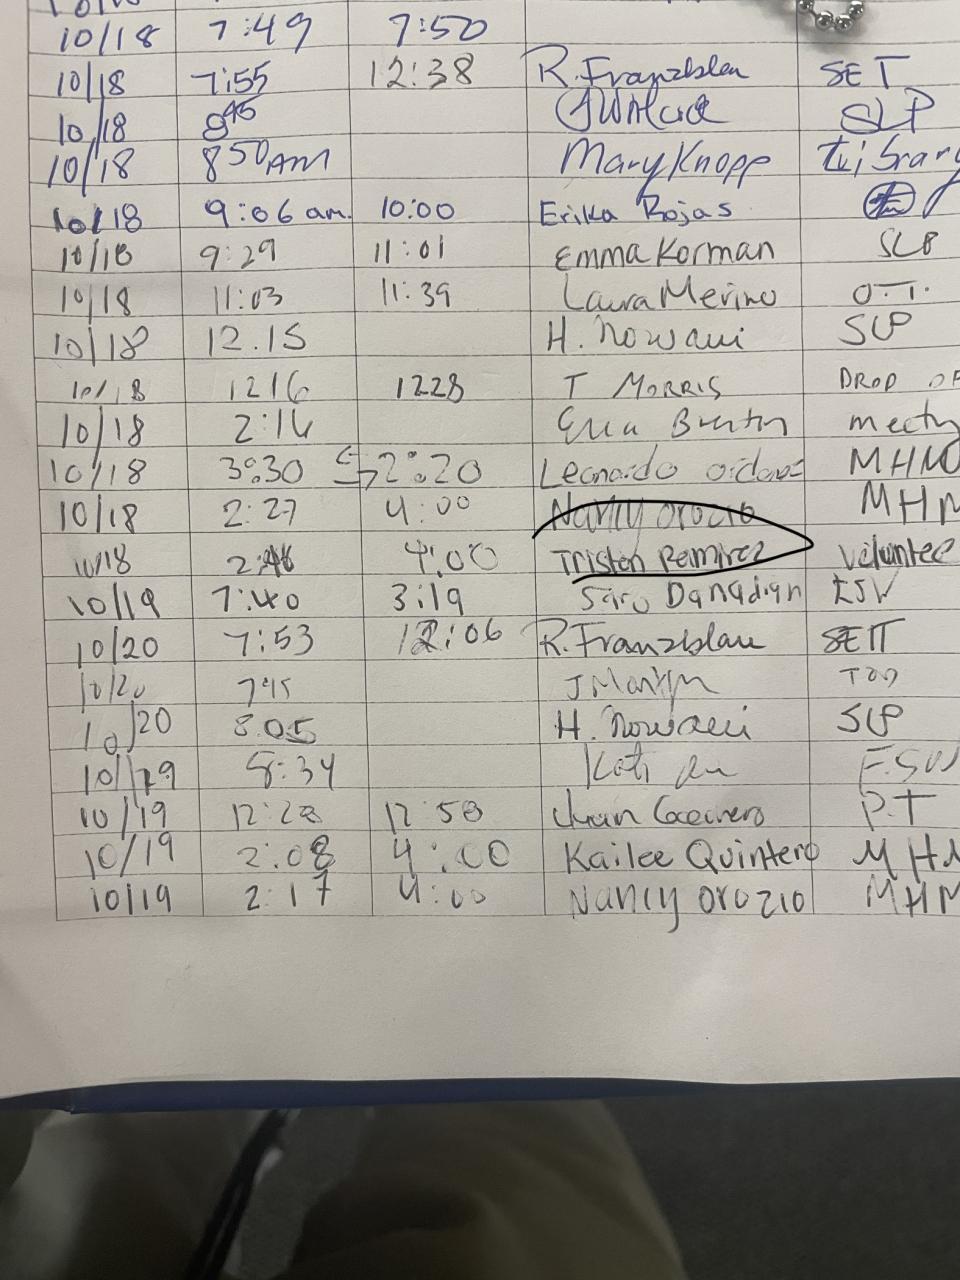 10/18 7:49 7:50
10/18 7:55 12:38 R. Franzblau SET
10/18 8:45 SLP
10/18 8:50 AM Mary Knopp Library
10/18 9:06 am. 10:00 Erika Rojas
10/18 9:29 11:01 Emma Korman SLP
10/18 11:03 11:39 Laura Merino O.T.
10/18 12.15 H. Nowaui SLP
10/18 1216 1228 T MORRIS DROP OF
10/18 2:14
10/18 3:30 2:20 Leonardo MHM
10/18 2:27 4:00 Nancy Orozio MHM
10/18 4:00 Tristen Remirez Voluntee
10/19 7:40 3:19 Danadian
10/20 7:53 12:06 R. Franzblau SEIT
10/20 7:45
10/20 8.05 H. Nowaui SLP
10/19 8:34
10/19 12:28 12:58 Juan P.T
10/19 2:08 4:00 Kailee Quintero MHM
10/19 2:17 4:00 Nancy Orozio MHM